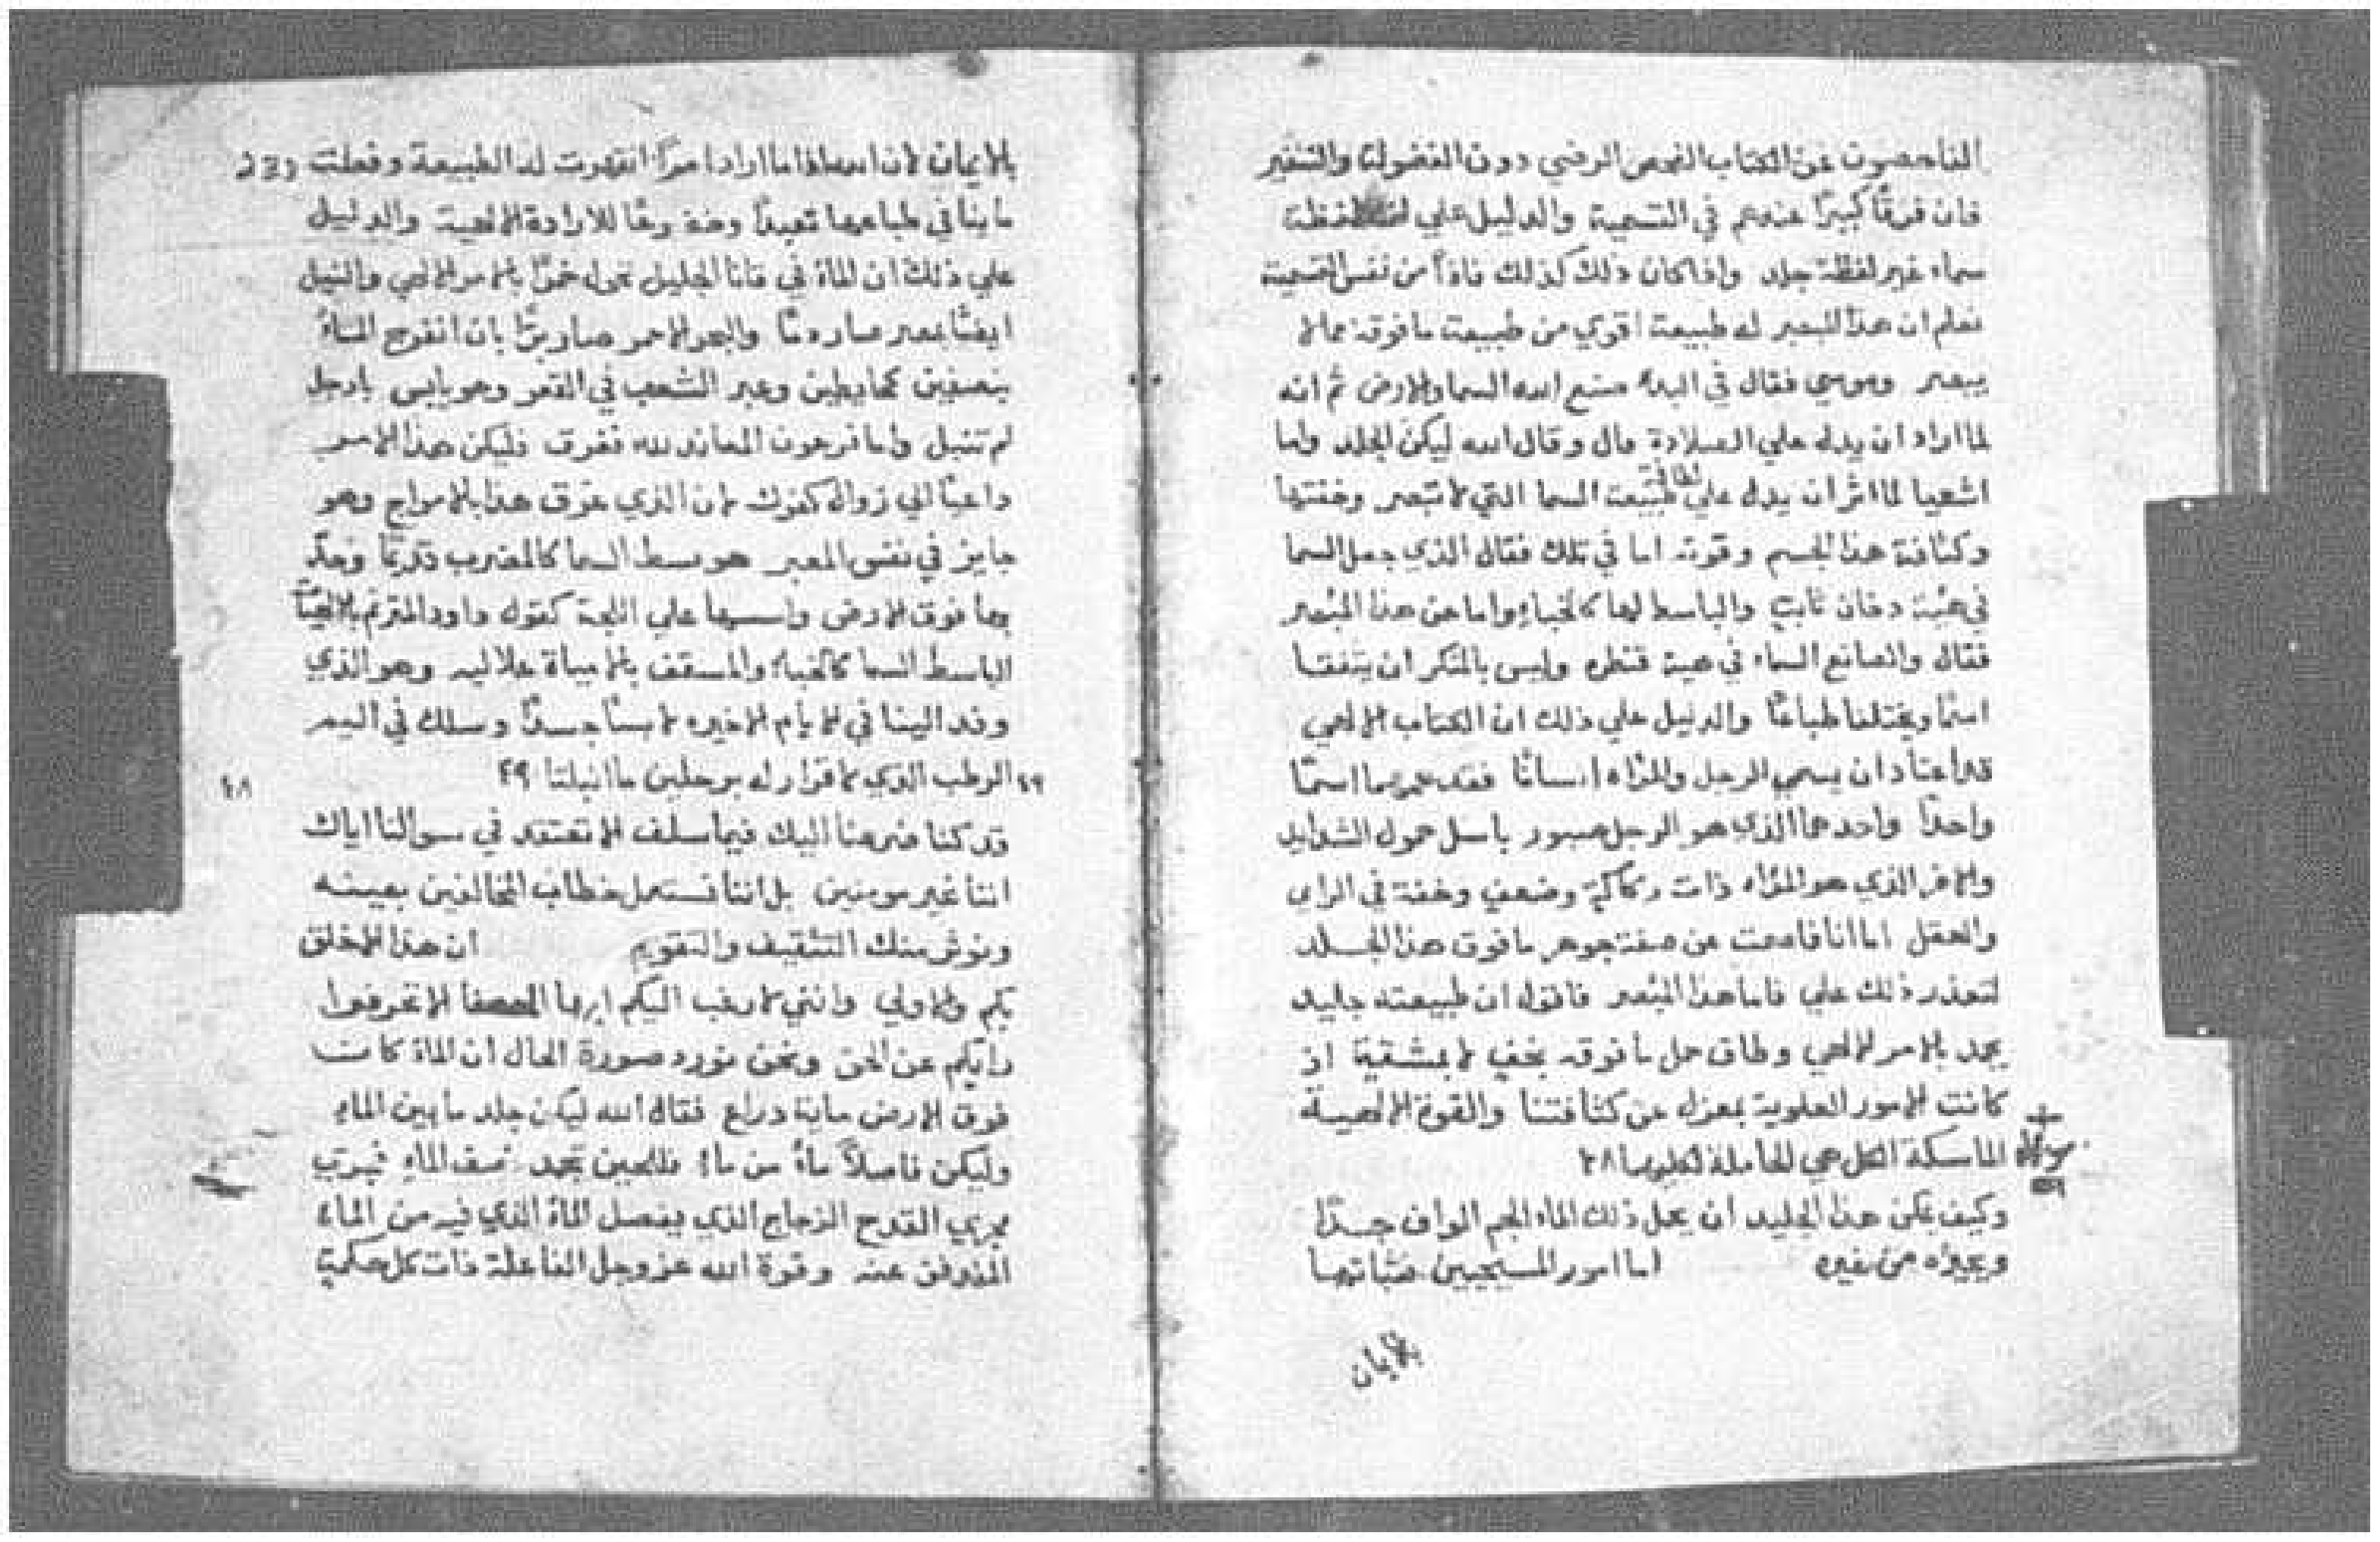 الفاحصون عن الكتاب الفحص الرضي دون الفضولي والتنقير
فان فرقًا كبيرًا عندهم في التسمية والدليل علي لفظة
سماء غير لفظة جلد واذا كان ذلك كذلك فاذًا من نفس التسمية
نعلم ان هذا المبصر له طبيعة اقوي من طبيعة ما فوقه مما لا
يبصر وموسي فقال في البدء صنع الله السما والارض ثم انه
لما اراد ان يدل علي الصلادة قال وقال الله ليكن الجلد واما
اشعيا لما اثر ان يدل علي لطافة طبيعة السما التي لا تبصر وخفتها
وكثافة هذا الجسم وقوته اما في تلك فقال الذي جعل السما
في هيئة دخان ثابت والباسط لها كالخباء واما عن هذا المبصر
فقال والصانع السماء في هيئة قنطره وليس بالمنكر ان يتفقا
اسمًا ويختلفا طباعًا والدليل علي ذلك ان الكتاب الالهي
قد اعتاد ان يسمي الرجل والمراه انسانًا فقد عمهما اسمًا
واحدًا واحدهما الذي هو الرجل صبور باسل حمول الشدايد
والاخر الذي هو المراه ذات ركاكة وضعف وخفة في الراي
والعقل اما انا فاصمت عن صفة جوهر ما فوق هذا الجلد
لتعذر ذلك علي فاما هذا المبصر فاقول ان طبيعته جليد
جمد بالامر الالهي وطاق حمل ما فوقه بخف لا بمشقة اذ
كانت الامور العلوية بمعزل عن كثافتنا والقوة الالهية
الماسكة الكل هي الحاملة لكليهما ٤٨
سوال
٤٩
وكيف يمكن هذا الجليد ان يحمل ذلك الماء الجم الوافر جدًا
ويجيزه من غيره اما امور المسيحيين فثباتها
بالايمان
بالايمان لان الله اذا ما اراد امرًا انقهرت له الطبيعة وفعلت
ما ينافي طباعها تعبدًا وخضوعًا للارادة الالهية والدليل
علي ذلك ان الماء في قانا الجليل تحول خمرًا بالامر الالهي والنيل
ايضًا بمصر صار دمًا والبحر الاحمر صار برًا بان انفرج الماء
بنصفين كحايطين وعبر الشعب في القعر وهو يابس بارجل
لم تتبل واما فرعون المعاند لله فغرق فليكن هذا الامر
داعيًا الي زوال كفرك لان الذي غرق هذا بالامواج وهو
جايز في نفس المعبر هو بسط السما كالمضرب قديمًا وحد
بها فوق الارض واسسها علي اللجة كقول داود المترنم بالالهيات
الباسط السما كالخباء والمسقف بالمياة علاليه وهو الذي
وفد الينا في الايام الاخيره لابسًا جسدًا وسلك في اليم
الرطب الذي لا قرار له برجلين ما انبلتا ٤٩
٤٨
قد كنا ضرعنا اليك فيما سلف الا تعتقد في سوالنا اياك
اننا غير مومنين بل اننا نستعمل خطاب المخالفين بعينه
ونوثر منك التثقيف والتقويم ان هذا الاخلق
بكم والاولي وانني لارغب اليكم ايها الا تحرفوا
رايكم عن الحق ونحن نورد صورة الحال ان الماء كانت
فوق الارض ماية دراع فقال الله ليكن جلد ما بين الماء
وليكن فاصلاً ماءً من ماء فللحين تجمد نصف الماء
مجري القدح الزجاج الذي يفصل الماء الذي فيه من الماء
عنه وقوة الله عز وجل الفاعلة ذات كل حكمة